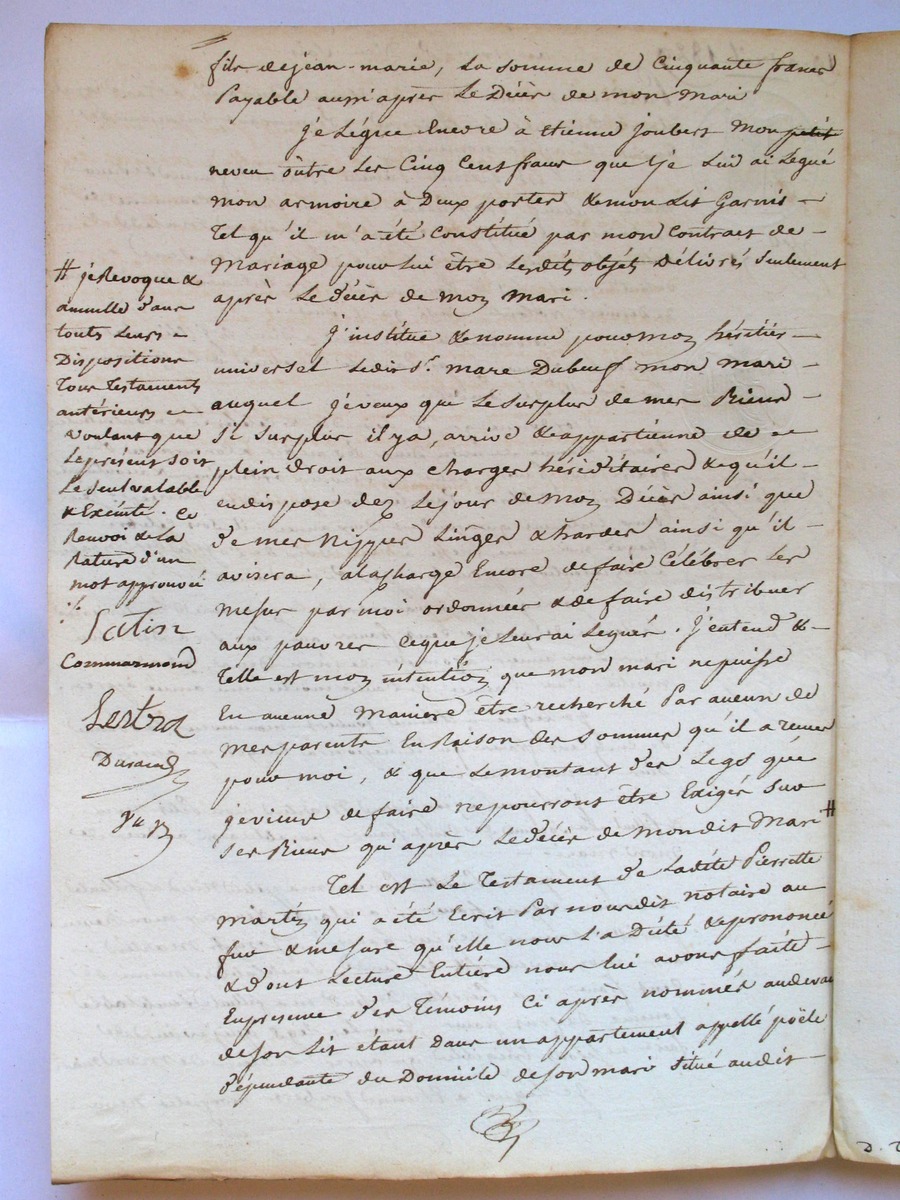 fils de jean-marie, la somme de Cinquante francs
Payable aussi après le Décès de mon Mari
je Légue Encore à Etienne joubert Mon petit
neveu outre Les Cinq Cent francs que je Lui ai Légué
mon armoire à Deux portes & mon Lit Garnis -
tel qu'il m'a été Constitué par mon Contrat de -
Mariage pour Lui être Lesdits objets Délivrés Seulement
après Le décès de mon mari.
J'institue & nomme pour mon héritier -
universel Ledit Sr. marc Duboeuf mon mari -
auquel je veux que Le Surplus de mes Biens -
Si Surplus il y a, arrive & appartienne de -
plein Droit aux charges héréditaires & qu'il -
en dispose dez Le jour de mon Décès ainsi que
de mes Nippes Linges & hardes ainsi qu'il -
avisera, a la charge Encore de faire Célébrer les
Messes par moi ordonnées & de faire distribuer
aux pauvres ce que je Leur ai Légués. J'entend & -
telle est mon intention que mon mari ne puisse
En aucune Maniere être recherché Par aucun de
mes parents En Raison des Sommes qu'il a
pour moi, & que Le montant des Legs que
je viens de faire ne pourront être Exigés Sur
Ses Biens qu'après Le décès de mondit Mari #
Tel est Le Testament de Ladite Pierrette
Martin qui a été Ecrit Par nous dit notaire au
fur & mesure qu'elle nous L'a Dicté & prononcé
& dont Lecture Entière nous lui avons faite -
En présence des Témoins Ci après nommés au devant
de son Lit étant dans un appartement appellé poële
dépendante du Domicile de son mari Situé audit -
# je Revoque &
annulle dans
touts Leurs -
Dispositions
tous testaments
antérieurs -
voulant que
Le présent soit
Le seul valable
& Exécuté. Ce
Renvoi & la
Rature d'un
mot approuvé
Satin
Commarmond
Lestra
Durand